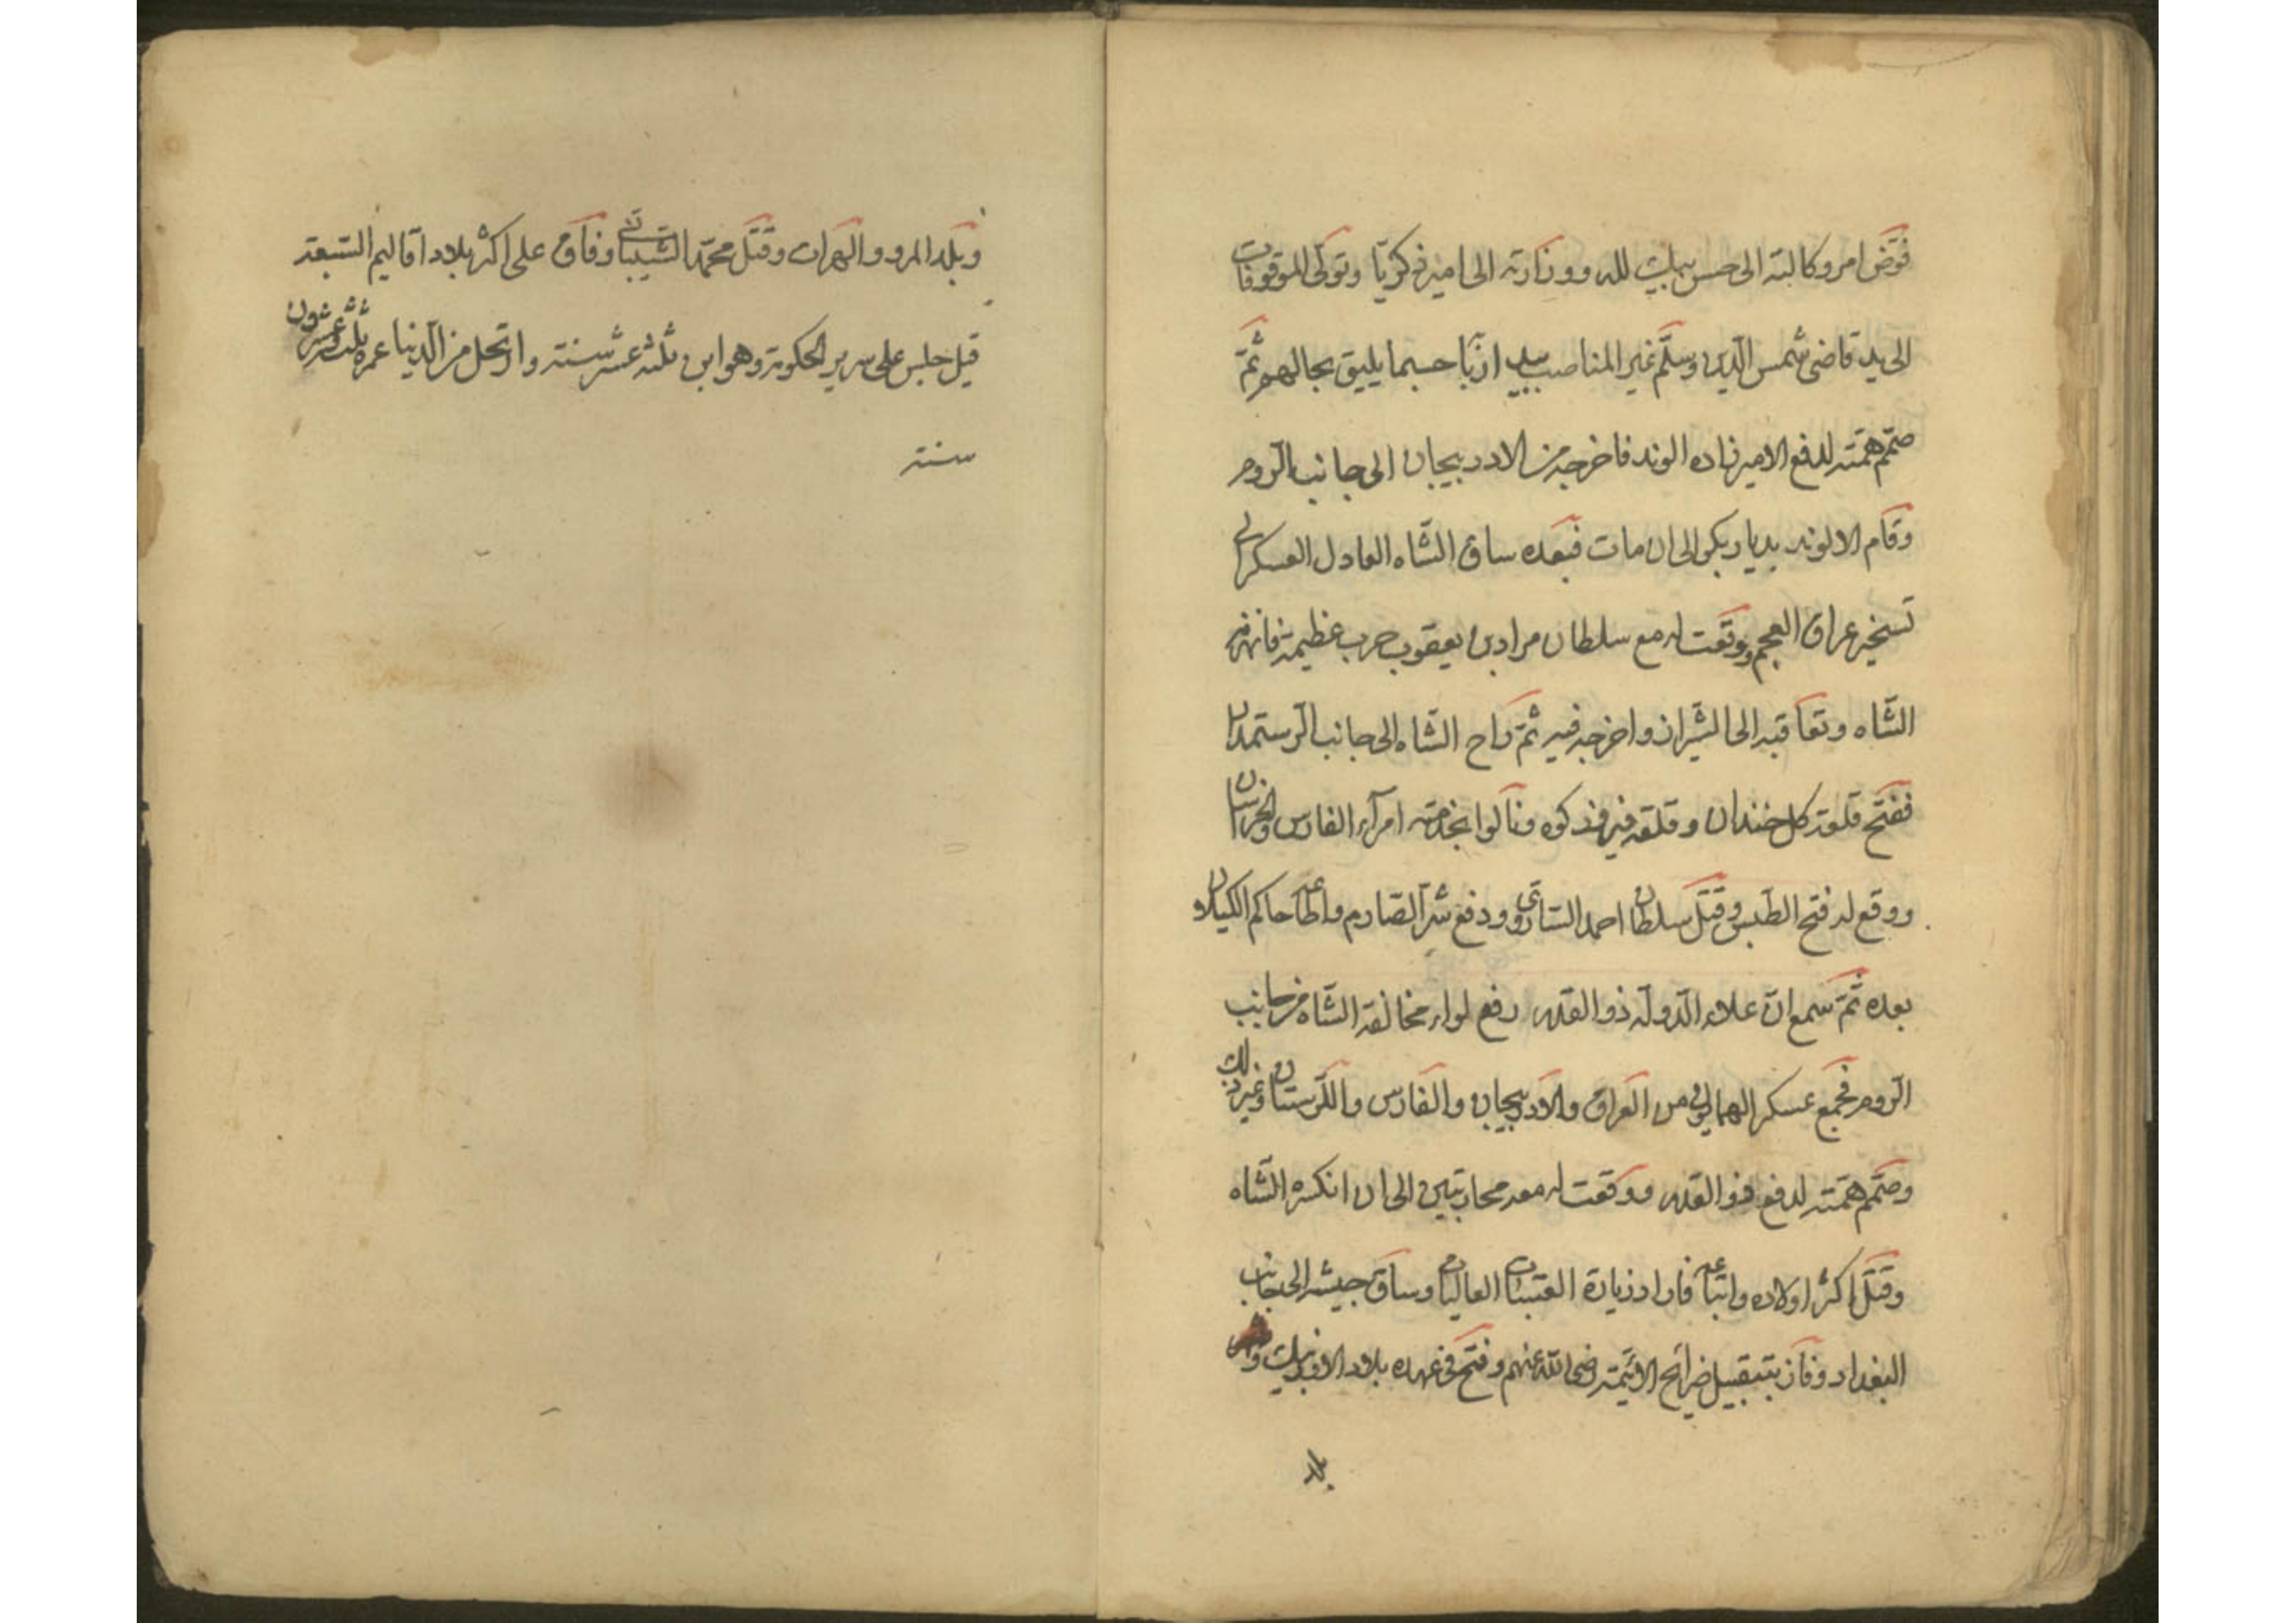 فوّض امر وكالته الى حسن بيك لله ووزارته الى امير زكريّا وتوكّى الموقوفات
الى يد قاضى شمس الدّين وسلّم غير المناصب بيد اربّا حسبما يليق بحالهم ثمّ
صمّم همّته لدفع الامير زاده الوند فاخرجه من الادربيجان الى جانب الروم
وقام الالوند بديار بكر الى ان مات فبعده ساق الشّاه العادل العسكر لى
تسخير عراق العجم ووقعت له مع سلطان مراد بن يعقوب حرب عظيمة فانهزمه
الشّاه وتعاقبه الى الشّيراز واخرجه فيه ثمّ راح الشّاه الى جانب الرستمدان
ففتح قلعة كل خندان وقلعة فيرفز كوه ونالوا بخدمته امرآء الفارس والخراسان
ووقع له فتح الطّبس وقتل سلطان احمد السّاروى ودفع شرّ الصّارم واطاعه حاكم الكيلان
بعده ثمّ سمع انّ علاء الدّولة ذو القدر رفع لواء مخالفة الشّاه من جانب
الروم فجمع عسكر الهمايون من العراق والادربيجان والفارس والكرستان وغير ذلك
وصمّم همّته لدفع ذو القدر ووقعت له معه محاربتين الى ان انكسره الشّاه
وقتل اكثر اولاده واتباعه فاراد زيارة العتبات العاليات وساق جيشه الى جانب
البغداد وفاز بتقبيل ضرائح الائمّة رضى اللّه عنهم وفتح فى عهده بلاد الاوزبك و
بلد
وبلد المرو والهرات وقتل محمّد الشّيبانى وفاق على اكثر بلاد اقاليم السّبعة
قيل جلس على سرير الحكومة وهو ابن ثلثة عشر سنة وارتحل من الدّنيا عمره ثلث وعشرون
سنة